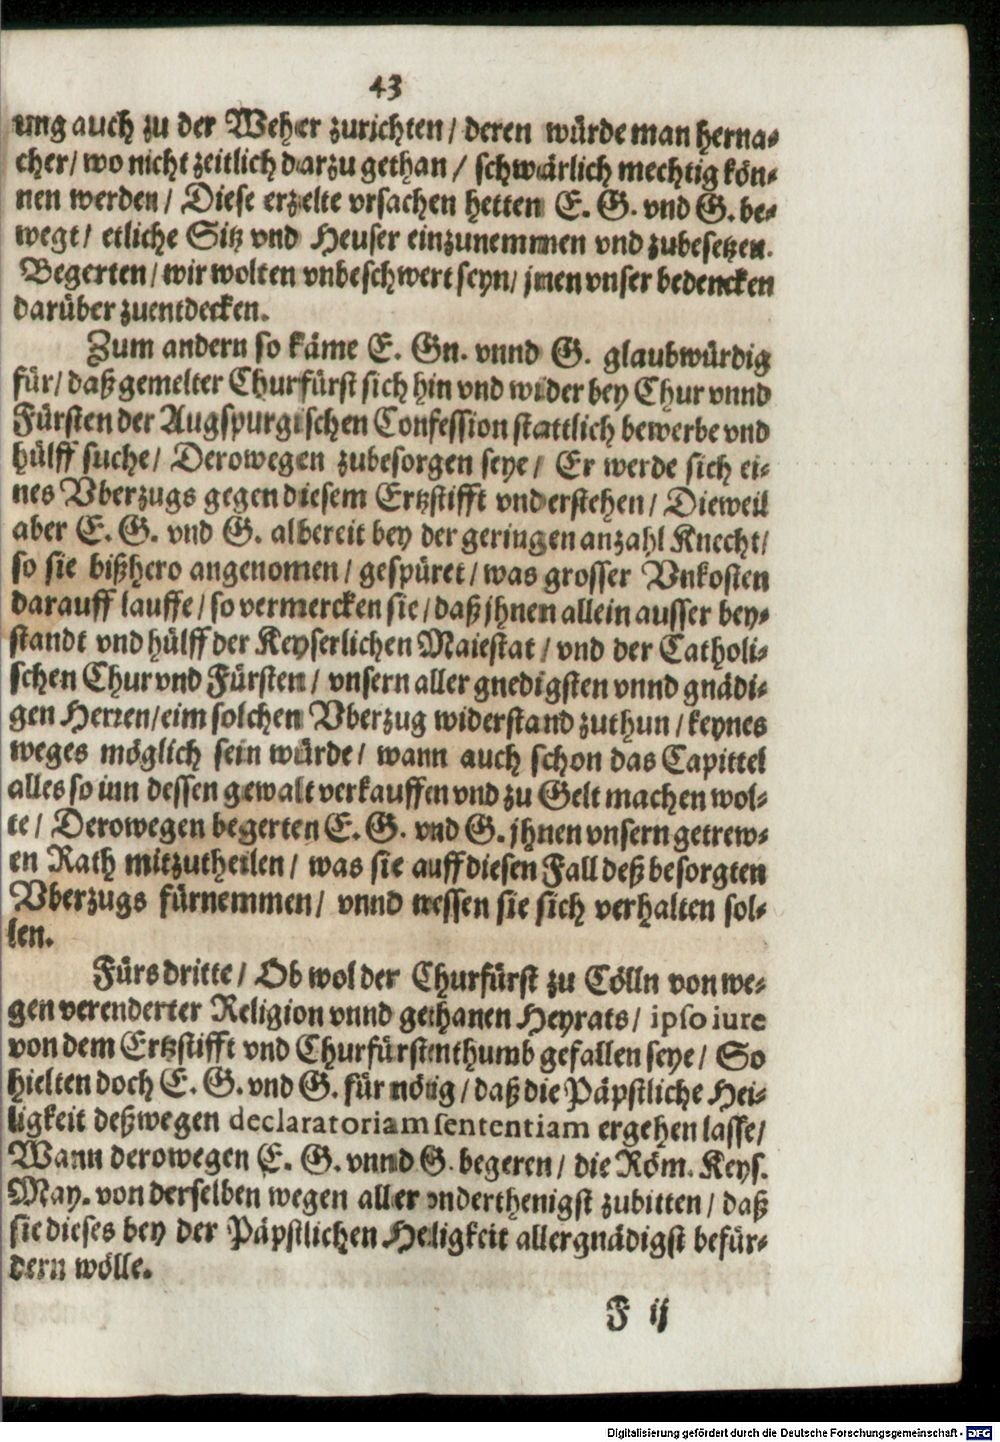 43
ung auch zu der Weher zurichten / deren würde man herna-
cher / wo nicht zeitlich darzu gethan / schwärlich mechtig kön-
nen werden / Diese erzelte vrsachen hetten E. G. vnd G. be-
wegt / etliche Sitz vnd Heuser einzunemmen vnd zubesetzen.
Begerten / wir wolten vnbeschwert seyn / jnen vnser bedencken
darüber zuentdecken.
Zum andern so käme E. Gn. vnnd G. glaubwürdig
für / daß gemelter Churfürst sich hin vnd wider bey Chur vnnd
Fürsten der Augspurgischen Confession stattlich bewerbe vnd
hülff suche / Derowegen zubesorgen seye / Er werde sich ei-
nes Vberzugs gegen diesem Ertzstifft vnderstehen / Dieweil
aber E. G. vnd G. albereit bey der geringen anzahl Knecht /
so sie bißhero angenomen / gespüret / was grosser Vnkosten
darauff lauffe / so vermercken sie / daß jhnen allein ausser bey-
standt vnd hülff der Keyserlichen Maiestat / vnd der Catholi-
schen Chur vnd Fürsten / vnsern aller gnedigsten vnnd gnädi-
gen Herren / eim solchen Vberzug widerstand zuthun / keynes
weges möglich sein würde / wann auch schon das Capittel
alles so inn dessen gewalt verkauffen vnd zu Gelt machen wol-
te / Derowegen begerten E. G. vnd G. jhnen vnsern getrew-
en Rath mitzutheilen / was sie auff diesen Fall deß besorgten
Vberzugs fürnemmen / vnnd wessen sie sich verhalten sol-
len.
Fürs dritte / Ob wol der Churfürst zu Cölln von we-
gen verenderter Religion vnnd gethanen Heyrats / ipso iure
von dem Ertzstifft vnd Churfürstenthumb gefallen seye / So
hielten doch E. G. vnd G. für nötig / daß die Päpstliche Hei-
ligkeit deßwegen declaratoriam sententiam ergehen lasse /
Wann derowegen E. G. vnnd G. begeren / die Röm. Keys.
May. von derselben wegen aller vnderthenigst zubitten / daß
sie dieses bey der Päpstlichen Heligkeit allergnädigst befür-
dern wölle.
F ij
Digitalisierung gefördert durch die Deutsche Forschungsgemeinschaft - DFG